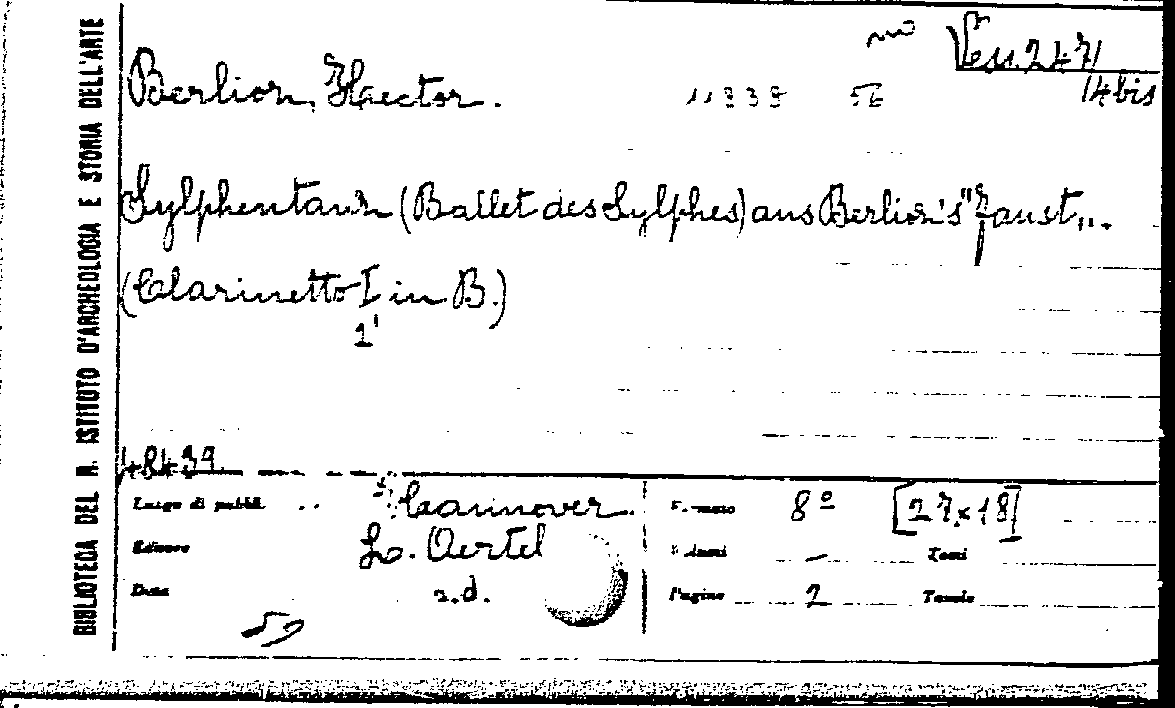 BIBLIOTECA DEL R. ISTITUTO D'ARCHEOLOGIA E STORIA DELL'ARTE
Ven. 247
14 bis
Berlioz, Haector.
11839 56
Sylphentanz (Ballet des Sylphes) aus Berlioz's "Faust,,.
(Clarinetto I in B.)
1'
48439
Luogo di pubbl. .. Hannover.
Editore L. Oertel
Data s.d.
Formato 8º [27×18]
Volumi – Tomi
Pagine 2 Tavole